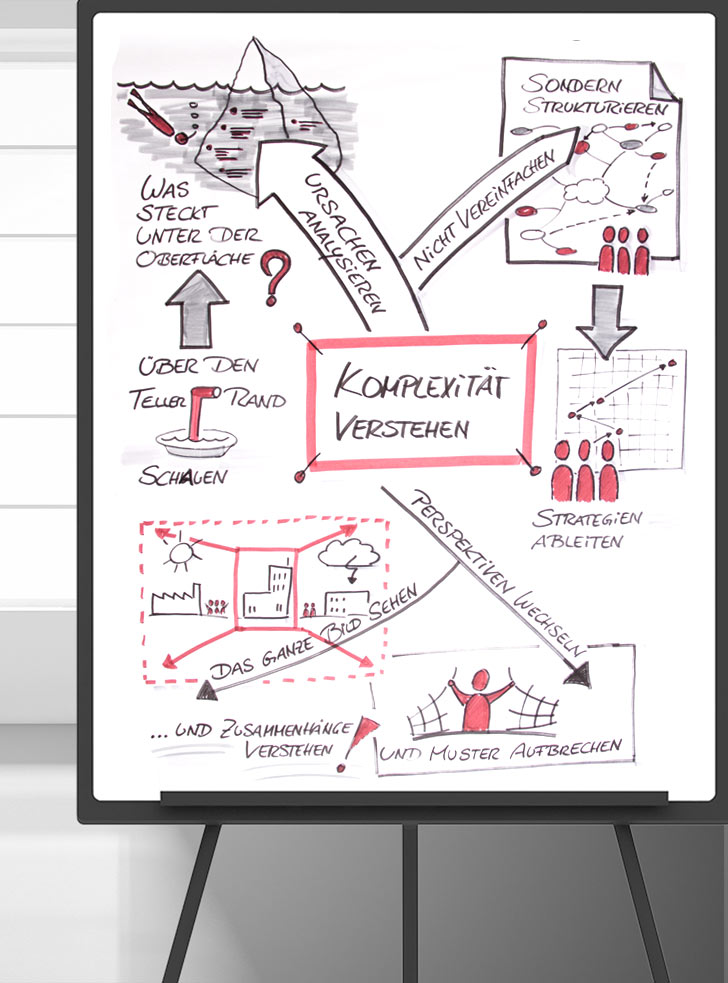 SONDERN
STRUKTURIEREN
NICHT VEREINFACHEN
URSACHEN
ANALYSIEREN
WAS
STECKT
UNTER DER
OBERFLÄCHE ?
ÜBER DEN
TELLER RAND
SCHAUEN
KOMPLEXITÄT
VERSTEHEN
STRATEGIEN
ABLEITEN
PERSPEKTIVEN WECHSELN
DAS GANZE BILD SEHEN
... UND ZUSAMMENHÄNGE
VERSTEHEN !
UND MUSTER AUFBRECHEN